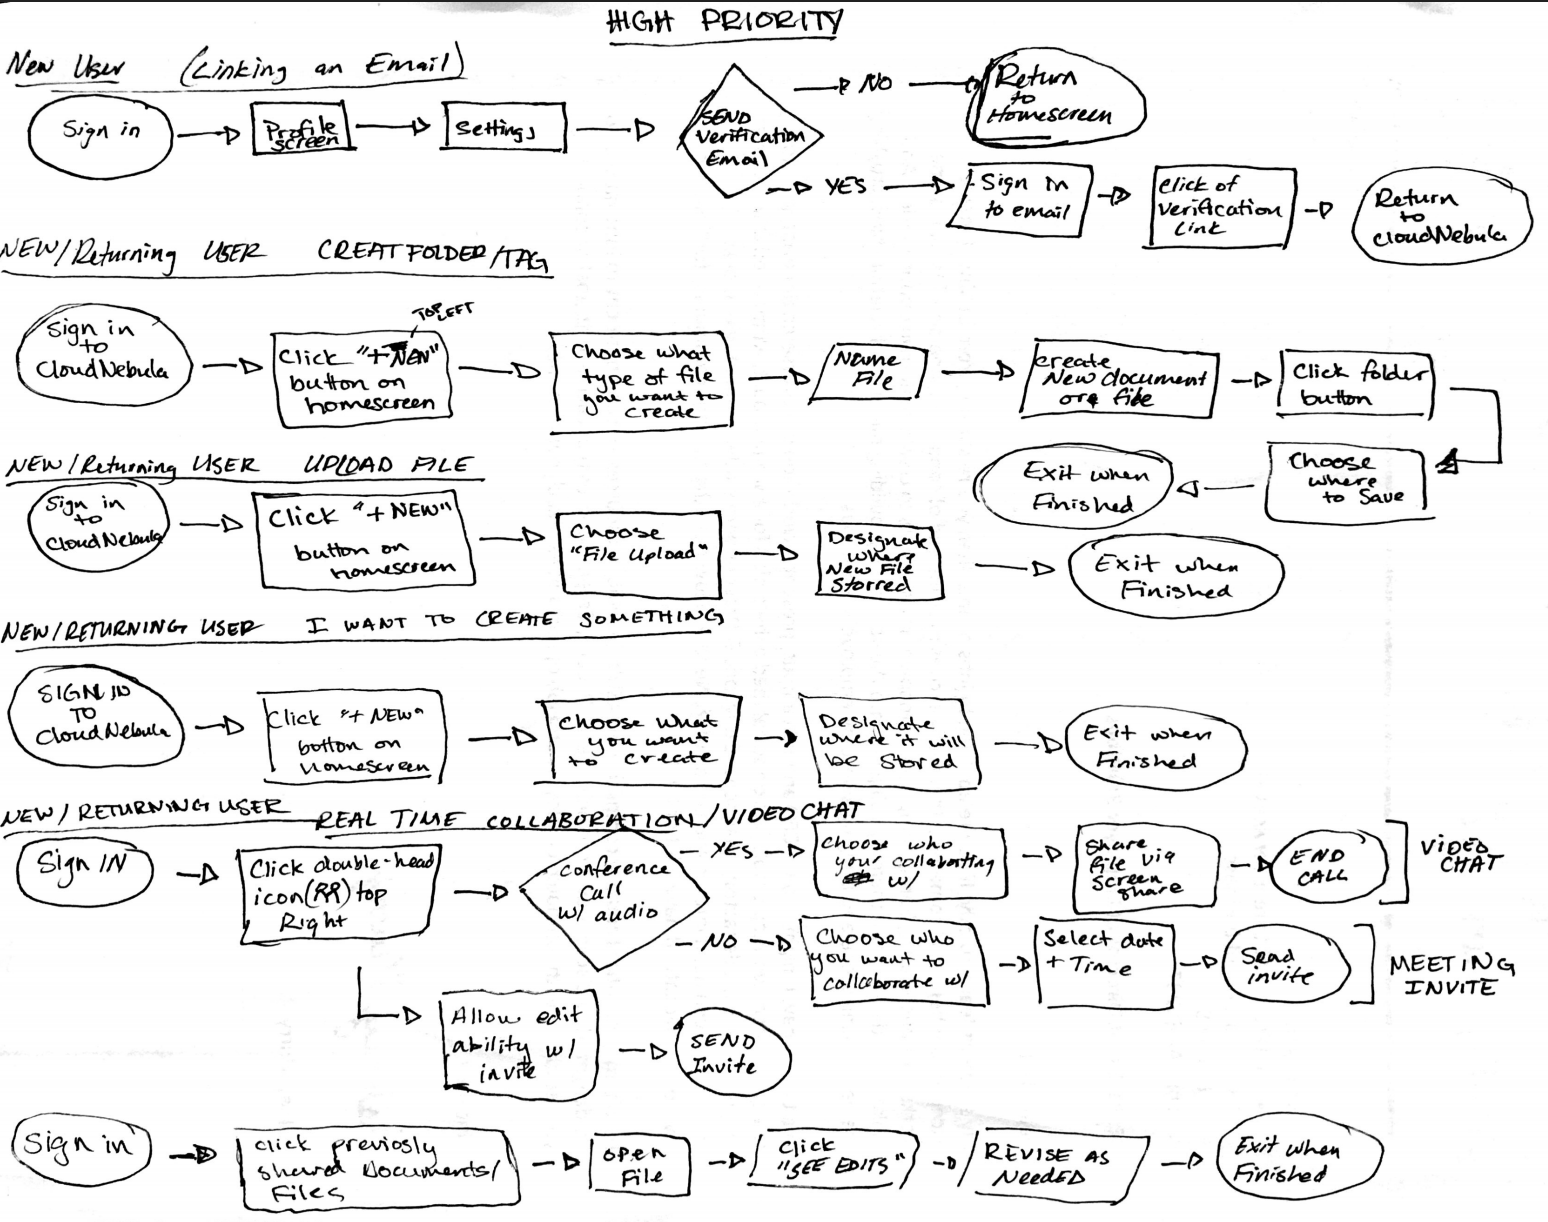 HIGH PRIORITY
New User (Linking an Email)
Sign in
Profile
screen
Settings
SEND
Verification
Email
NO
Return
to
Homescreen
YES
Sign in
to email
Click of
Verification
Link
Return
to
CloudNebula
NEW/Returning USER CREAT FOLDER/TAG
Sign in
to
CloudNebula
TOP LEFT
Click "+NEW"
button on
homescreen
Choose what
type of file
you want to
create
Name
File
Create
New document
or file
Click folder
button
Choose
where
to Save
Exit when
Finished
NEW/Returning USER UPLOAD FILE
Sign in
to
CloudNebula
Click "+NEW"
button on
homescreen
Choose
"File Upload"
Designate
where
New File
Storred
Exit when
Finished
NEW/RETURNING USER I WANT TO CREATE SOMETHING
SIGN IN
TO
CloudNebula
Click "+NEW"
botton on
homescreen
Choose what
you want
to create
Designate
where it will
be stored
Exit when
Finished
NEW/RETURNING USER REAL TIME COLLABORATION/VIDEO CHAT
Sign IN
Click double-head
icon( ) top
Right
Conference
Call
w/ audio
YES
Choose who
your collaborting
w/
Share
file via
Screen
share
END
CALL
VIDEO
CHAT
NO
Choose who
you want to
collaborate w/
Select date
+ Time
Send
invite
MEETING
INVITE
Allow edit
ability w/
invite
SEND
Invite
Sign in
Click previosly
shared Documents/
Files
Open
File
Click
"SEE EDITS"
REVISE AS
NeedED
Exit when
Finished